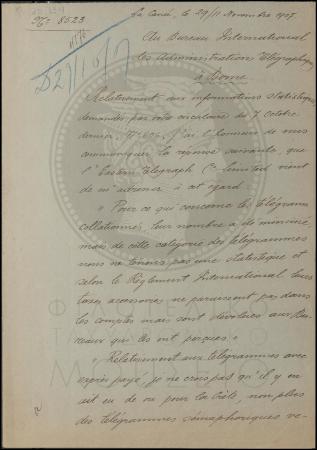 No 8523
La Canée, le 29/11 Novembre 1907
Au Bureau International
des Administrations Télégraphiques
à Berne
Relativement aux informations statistiques
demandées par votre circulaire du 7 octobre
dernier, No 606, j'ai l'honneur de vous
communiquer la réponse suivante, que
l'Eastern Telegraph Cie Limited vient
de m'adresser à cet égard.
"Pour ce qui concerne les télégrammes
collationnés, leur nombre a été minime,
mais de cette catégorie des télégrammes
nous ne tenons pas une statistique et
selon le Règlement International, leurs
taxes accessoires ne paraissent pas dans
les comptes mais sont dévolues aux Bu-
reaux qui les ont perçues."
"Relativement aux télégrammes avec
exprès payé, je ne crois pas qu'il y en
ait eu de ou pour la Crète, non plus
des télégrammes sémaphoriques ve-